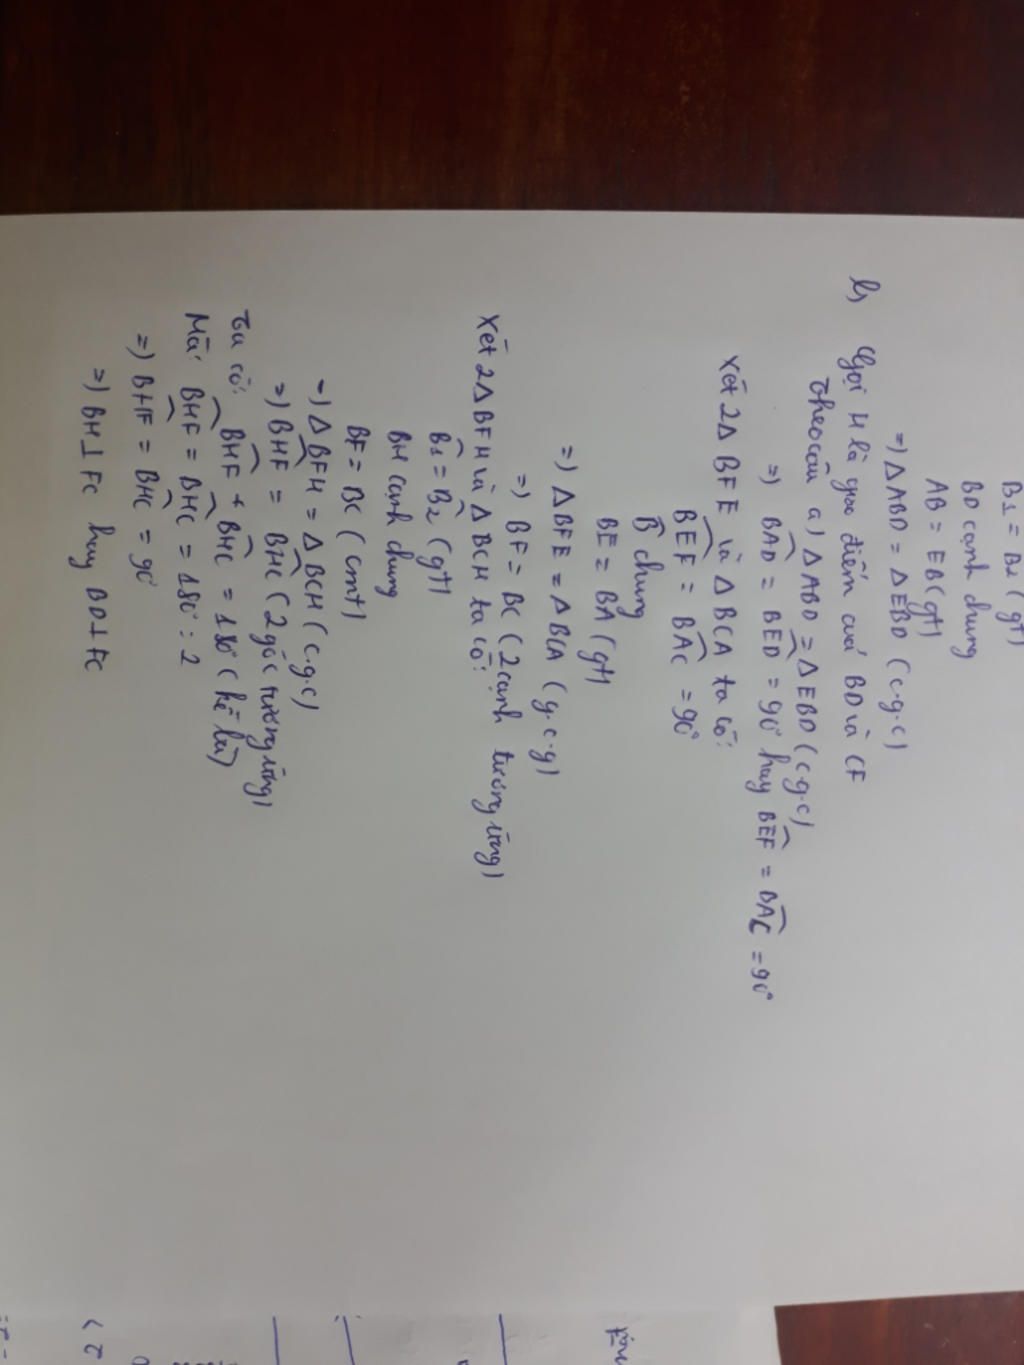 B̂₁ = B̂₂ (gt)
BD cạnh chung
AB = EB (gt)
=) ΔABD = ΔEBD (c.g.c)
b, Gọi H là giao điểm của BD và CF
Theo câu a) ΔABD = ΔEBD (c.g.c)
=) BAD = BED = 90° hay BEF = BAC = 90°
Xét 2Δ BFE và ΔBCA ta có:
BEF = BAC = 90°
B̂ chung
BE = BA (gt)
=) ΔBFE = ΔBCA (g.c.g)
=) BF = BC (2 cạnh tương ứng)
Xét 2Δ BFH và ΔBCH ta có:
B̂₁ = B̂₂ (gt)
BH cạnh chung
BF = BC (cmt)
=) ΔBFH = ΔBCH (c.g.c)
=) BHF = BHC (2 góc tương ứng)
Ta có: BHF + BHC = 180° (kề bù)
Mà: BHF = BHC = 180° : 2
=) BHF = BHC = 90°
=) BH ⊥ FC hay BD ⊥ FC